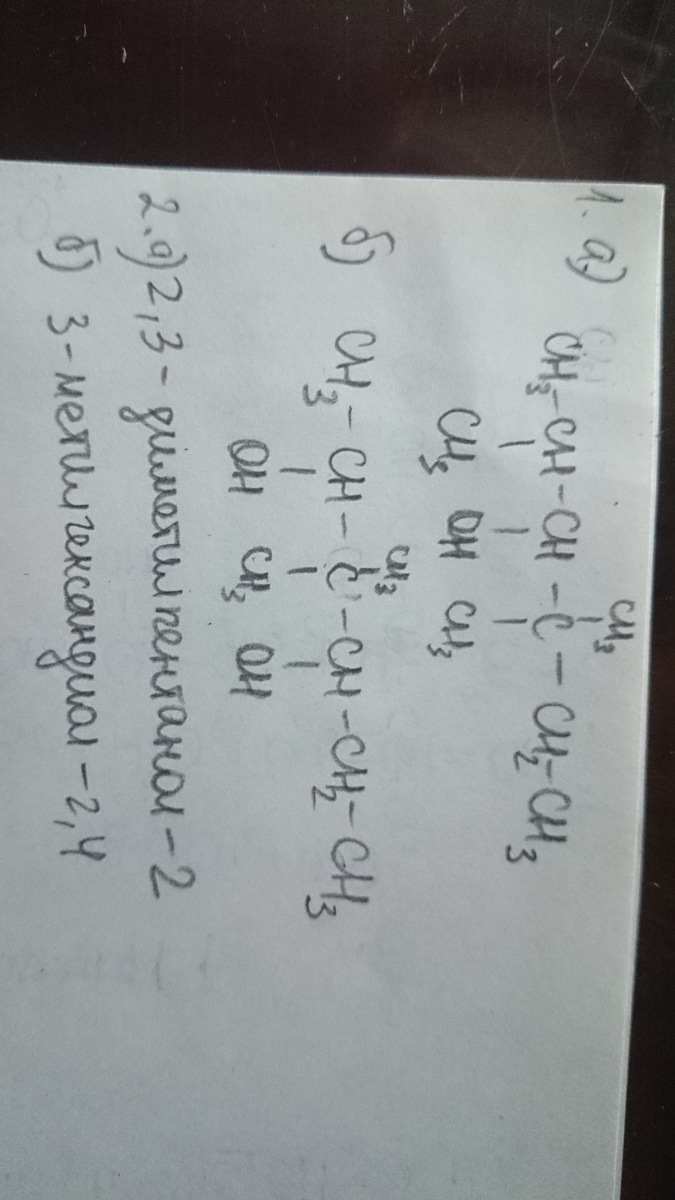 CH₃
1. а) CH₃-CH-CH-C-CH₂-CH₃
CH₃ OH CH₃
CH₃
б) CH₃-CH-C-CH-CH₂-CH₃
OH CH₃ OH
2.а) 2,3-диметилпентанол-2
б) 3-метилгександиол-2,4